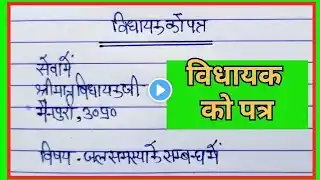 विधायक को पत्र
सेवा में
श्रीमान विधायक जी
मैनपुरी, उ०प्र०
विषय - जल समस्या के सम्बन्ध में
विधायक
को पत्र